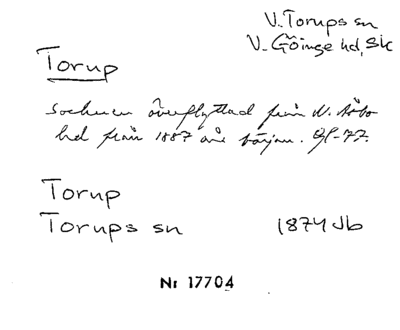 V. Torups sn
V. Göinge hd, Sk
Torup
Socknen överflyttad från N. Åsbo
hd från 1887 års början. Gf-77.
Torup
Torups sn 1874 Jb
Nr 17704